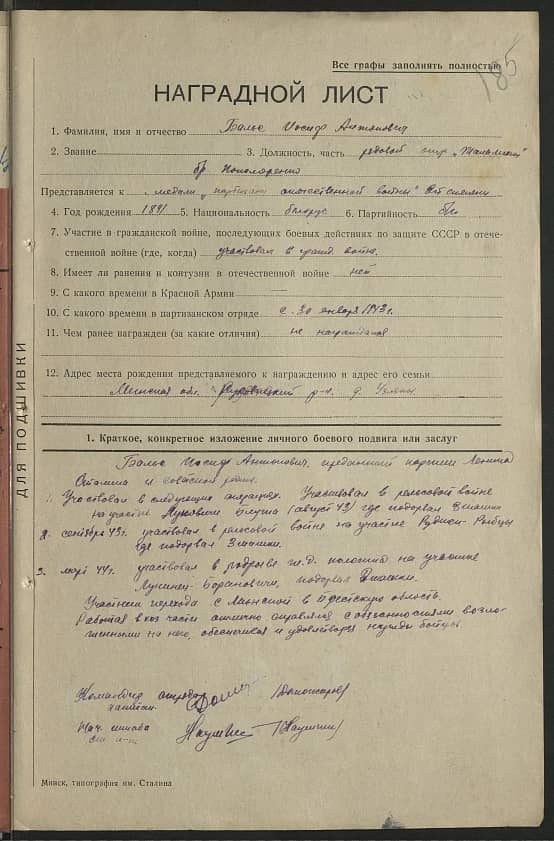 185
Все графы заполнять полностью
НАГРАДНОЙ ЛИСТ
1. Фамилия, имя и отчество Иосиф Антонович
2. Звание 3. Должность, часть рядовой отр.
бр. Пономаренко
Представляется к медали „партизану отечественной войны" степени
4. Год рождения 1891 5. Национальность белорус 6. Партийность б/п
7. Участие в гражданской войне, последующих боевых действиях по защите СССР в отече-
ственной войне (где, когда) участвовал в гражд. войне
8. Имеет ли ранения и контузии в отечественной войне нет
9. С какого времени в Красной Армии
10. С какого времени в партизанском отряде с 30 января 1943 г.
11. Чем ранее награжден (за какие отличия) не награждался
12. Адрес места рождения представляемого к награждению и адрес его семьи
Минская обл. р-н. д.
ДЛЯ ПОДШИВКИ
1. Краткое, конкретное изложение личного боевого подвига или заслуг
Иосиф Антонович, преданный партии Ленина
Сталина и
1. Участвовал в следующих операциях. Участвовал в рельсовой войне
на участке (август 43) где подорвал
2. сентябре 43 г. участвовал в рельсовой войне на участке
где подорвал
3. март 44 г. участвовал в подрыве ж.д. полотна на участке
Лунинец-Барановичи, подорвал
Участник перехода с Минской в Брестскую область.
Работая в хоз части отлично справлялся с обязанностями возло-
женными на него, обеспечивая и удовлетворяя нужды бойцов.
Командир отряда
капитан
Нач. штаба
ст. л-т (Наумчик)
Минск, типография им. Сталина